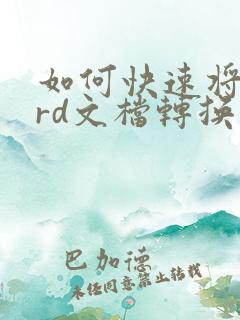 如何快速将
rd文檔轉换
巴加德
未经同意禁止转载